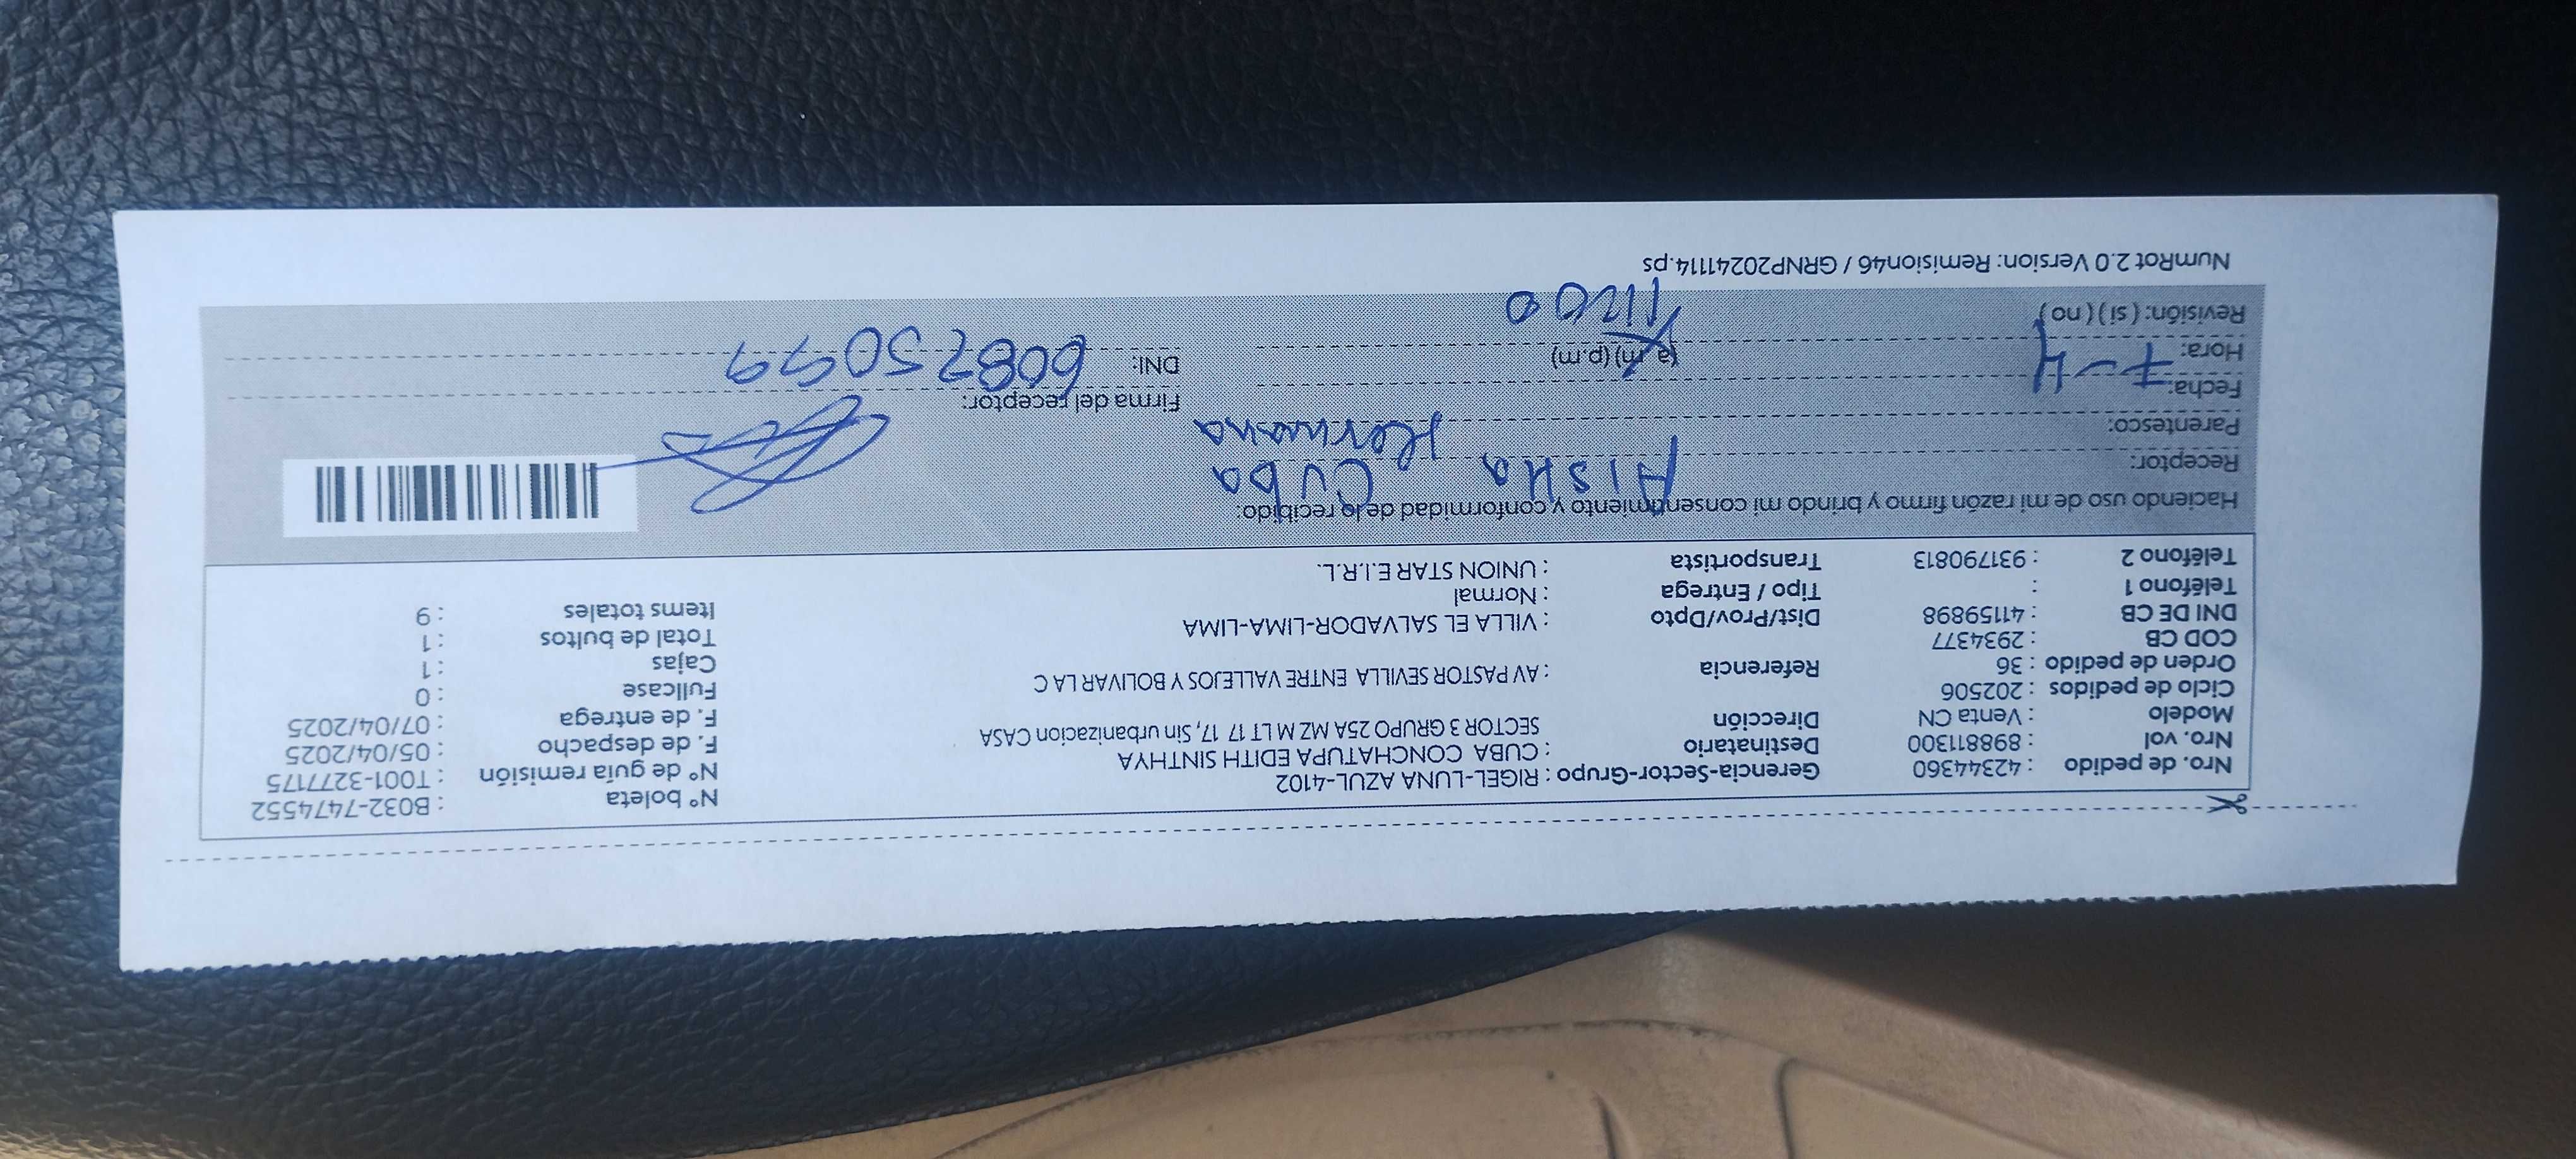 Nro. de pedido : 42344360 Gerencia-Sector-Grupo : RIGEL-LUNA AZUL-4102 N° boleta : B032-7474552
Nro. vol : 898811300 Destinatario : CUBA CONCHATUPA EDITH SINTHYA N° de guía remisión : T001-3277175
Modelo : Venta CN Dirección SECTOR 3 GRUPO 25A MZ M LT 17 17, Sin urbanizacion CASA F. de despacho : 05/04/2025
Ciclo de pedidos : 202506 F. de entrega : 07/04/2025
Orden de pedido : 36 Referencia : AV PASTOR SEVILLA ENTRE VALLEJOS Y BOLIVAR LA C Fullcase : 0
COD CB : 2934377 Cajas : 1
DNI DE CB : 41159898 Dist/Prov/Dpto : VILLA EL SALVADOR-LIMA-LIMA Total de bultos : 1
Teléfono 1 : Tipo / Entrega : Normal Items totales : 9
Teléfono 2 : 931790813 Transportista : UNION STAR E.I.R.L.
Haciendo uso de mi razón firmo y brindo mi consentimiento y conformidad de lo recibido:
Receptor: AISHA CUBA
Parentesco: Hermana
Fecha: 7-4 Firma del receptor:
Hora: (a.m) (p.m) DNI:
Revisión: (si) (no)
NumRot 2.0 Version: Remision46 / GRNP20241114.ps